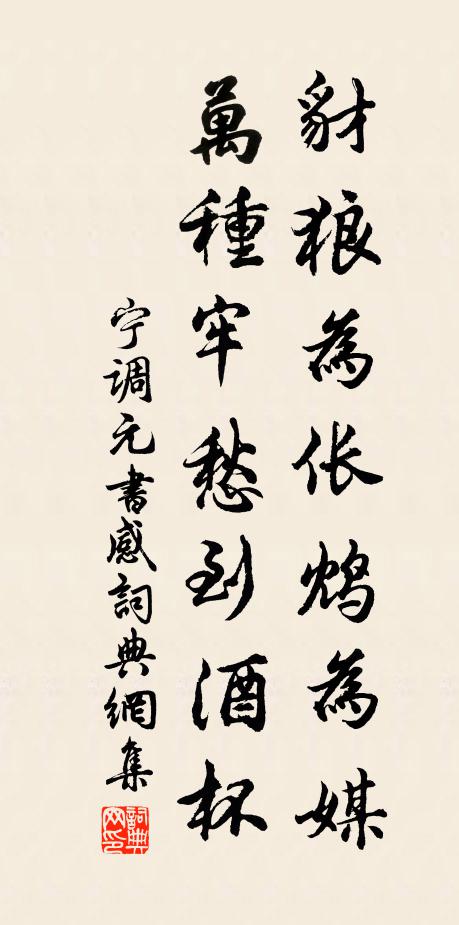 豺狼為伥鴆為媒
萬種牢愁到酒杯
宁調元書感詞典網集
詞典
网印